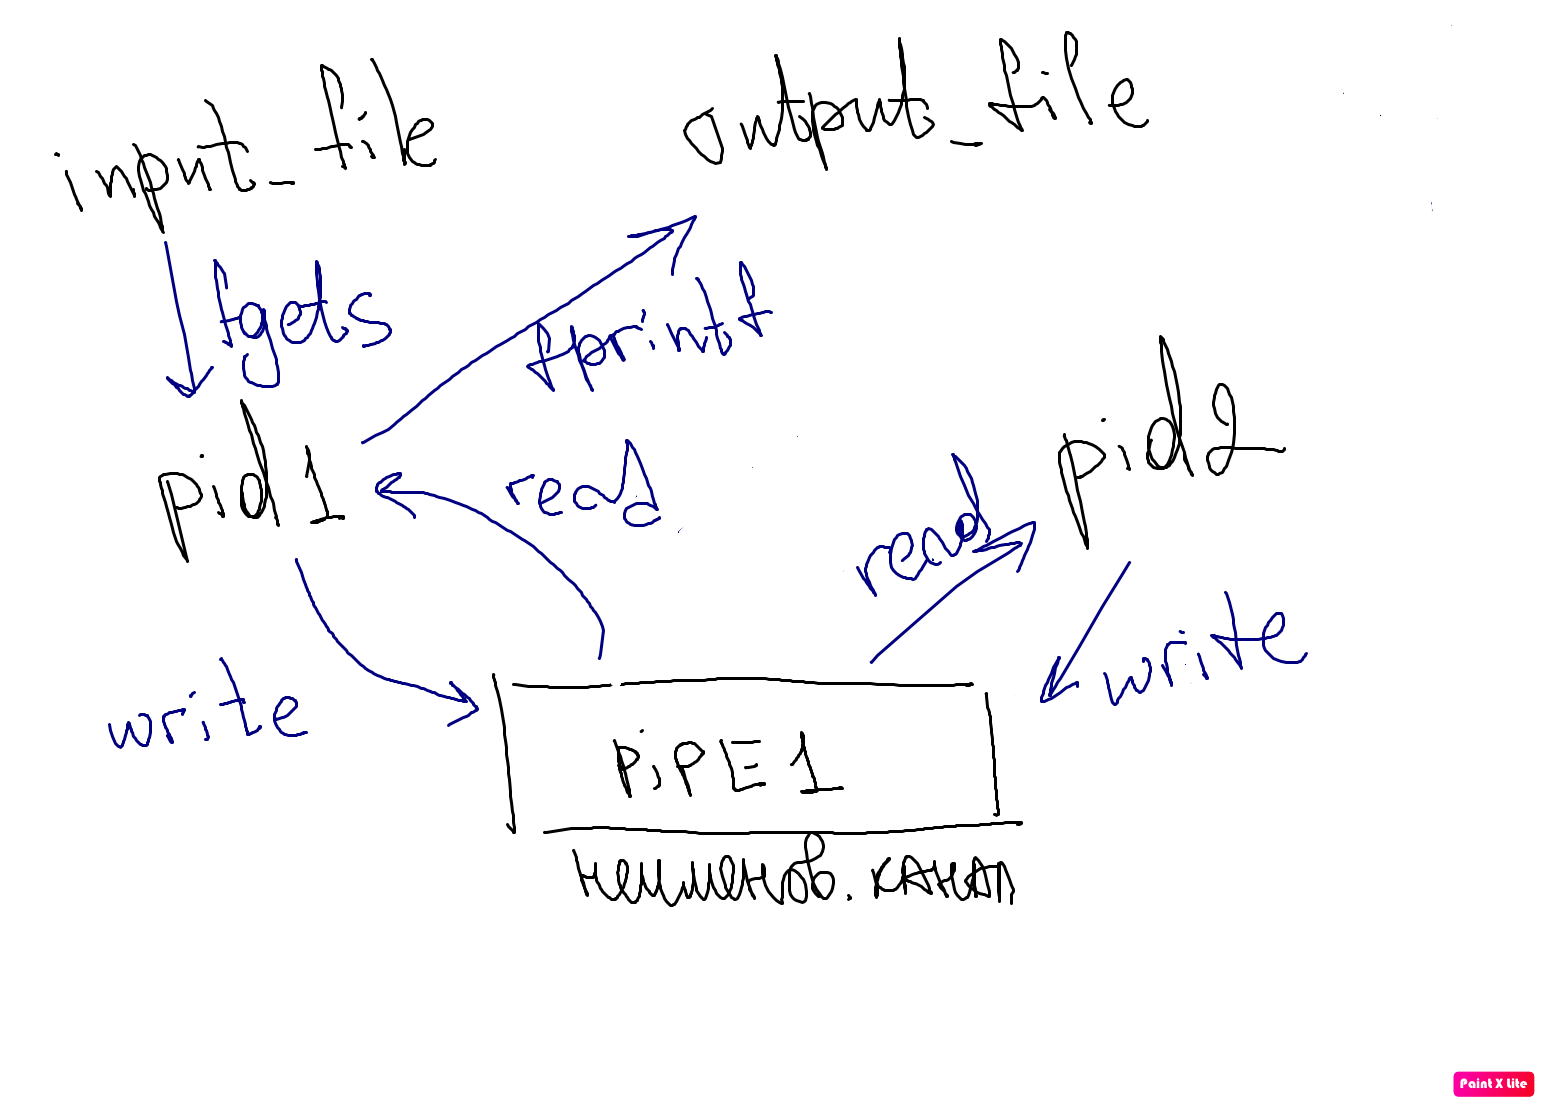 input_file
output_file
fgets
fprintf
pid1
read
pid2
read
write
write
PiPE1
неименов. канал
Paint X Lite